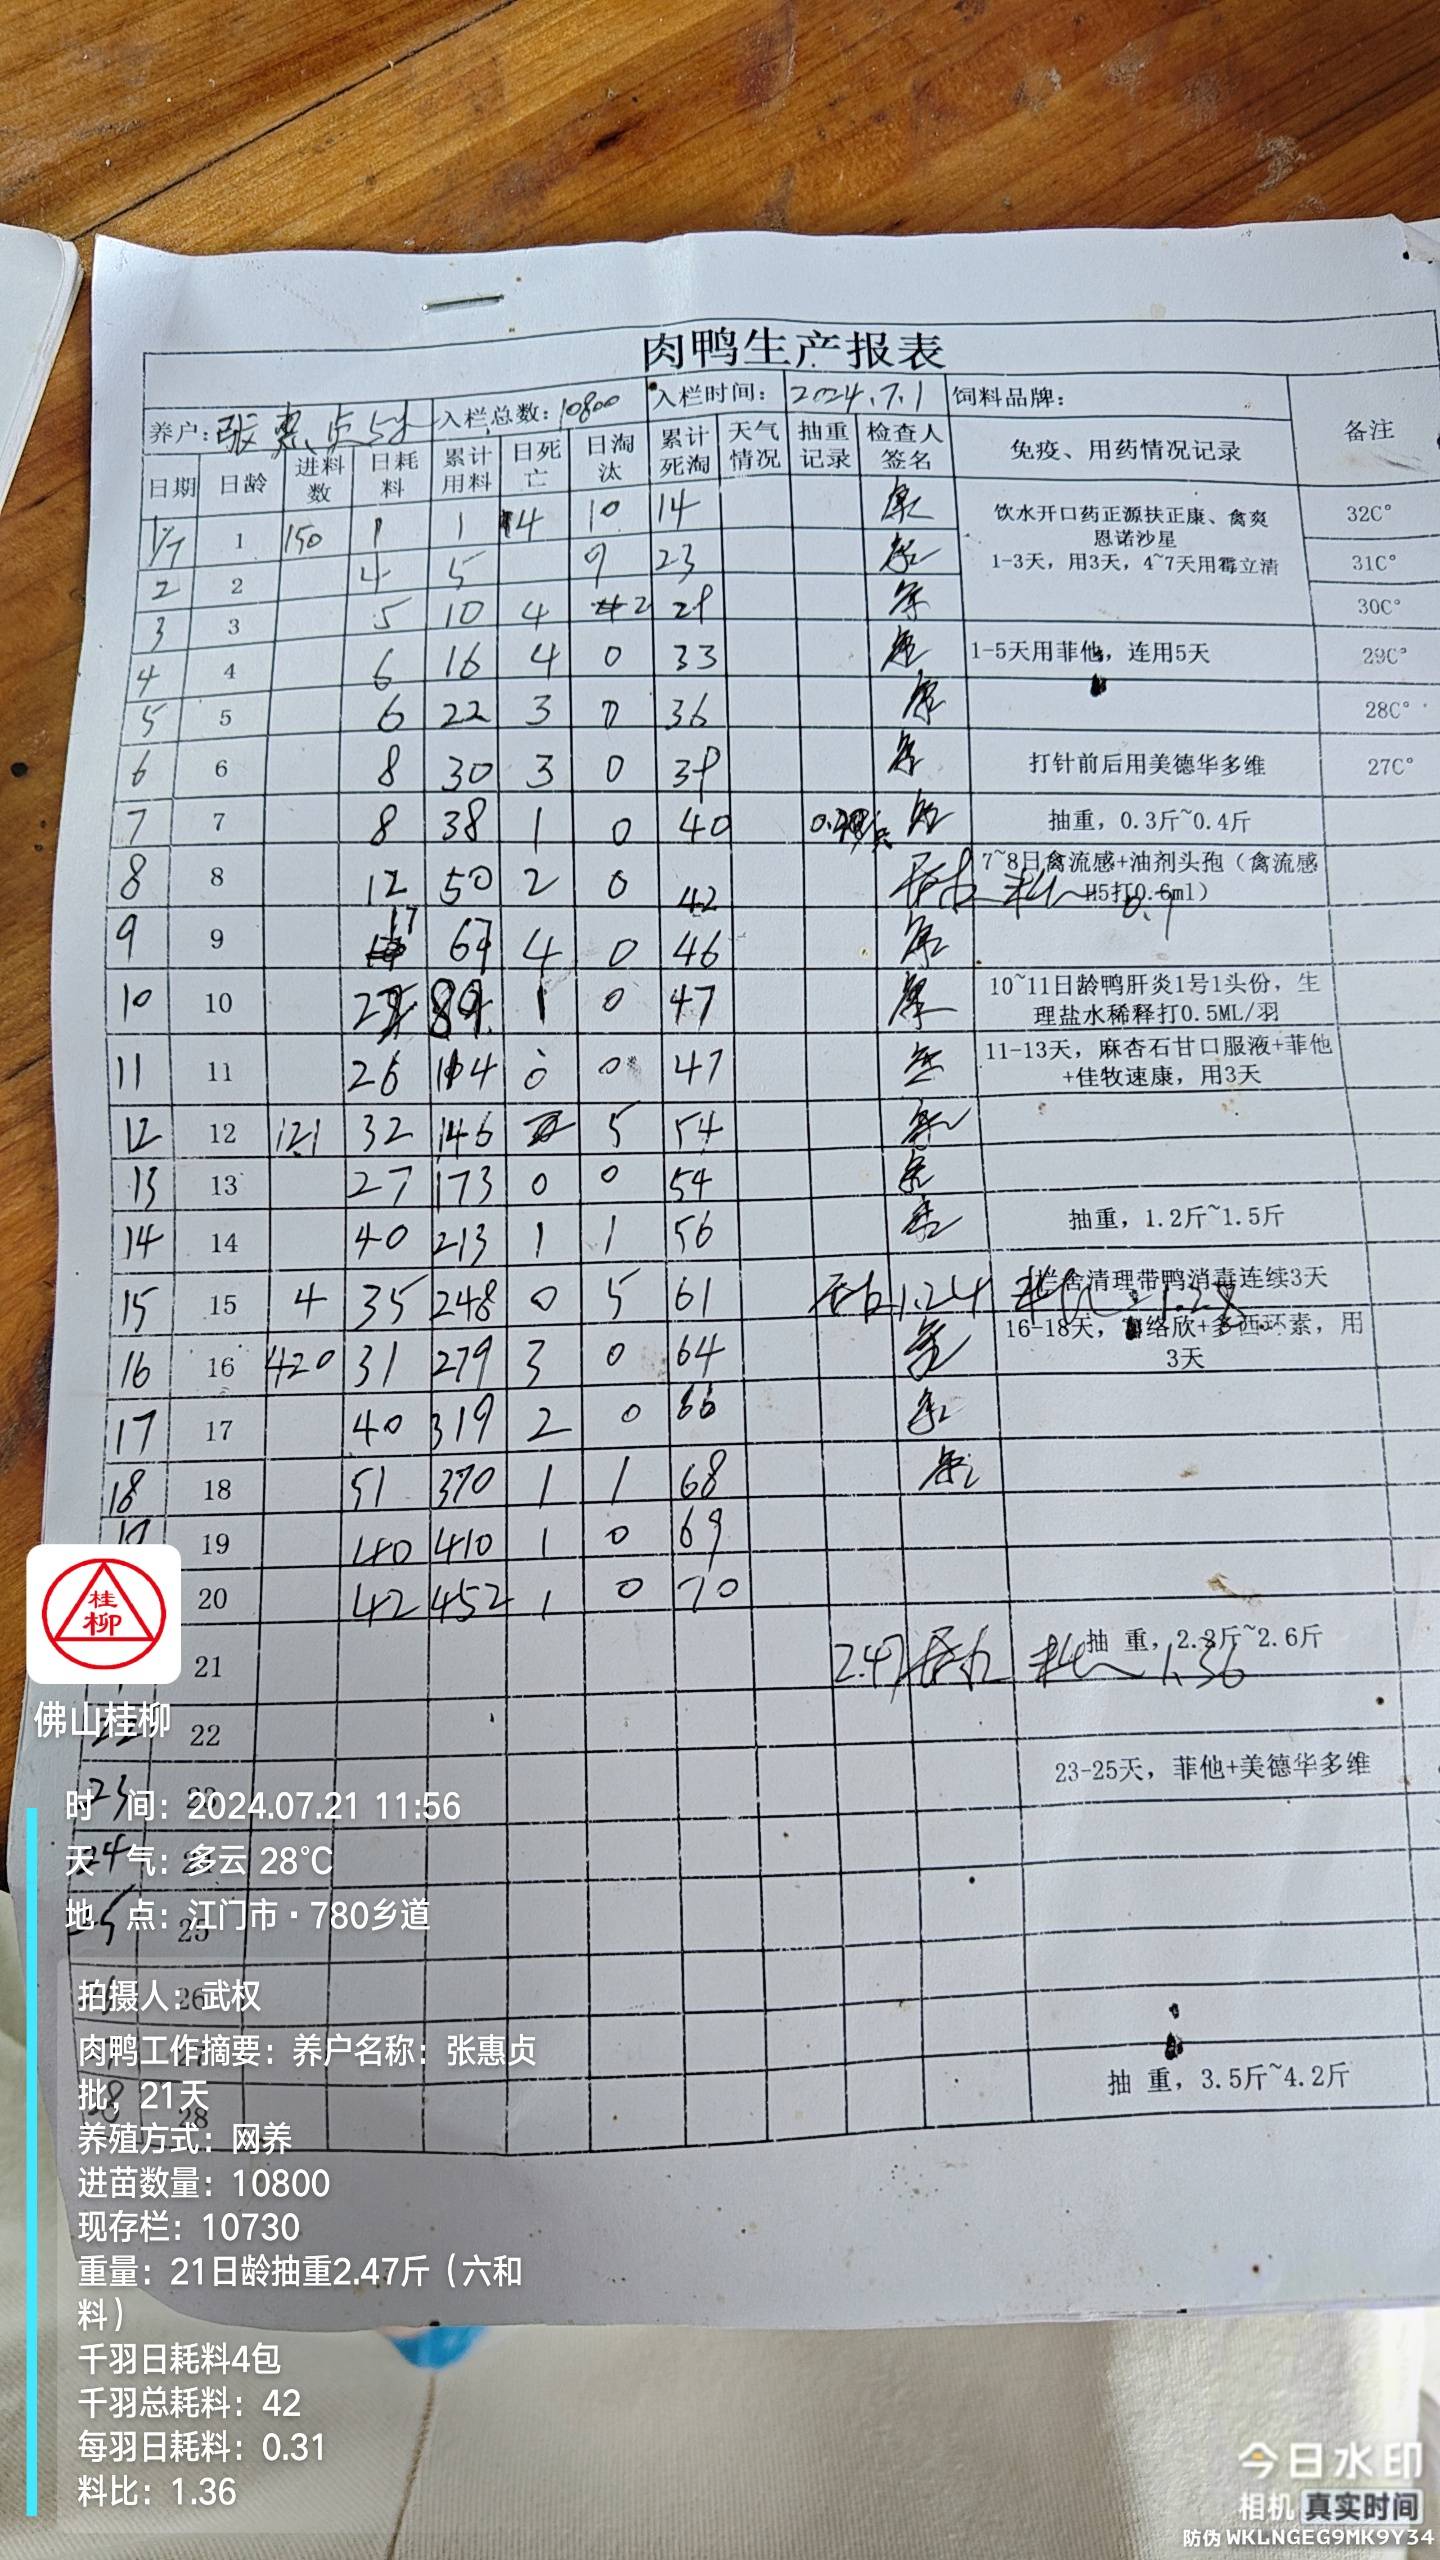 肉鸭生产报表
养户: 张惠贞 入栏总数: 10800 入栏时间: 2024.7.1 饲料品牌: 备注
日期 日龄 进料数 日耗料 累计用料 日死亡 日淘汰 累计死淘 天气情况 抽重记录 检查人签名 免疫、用药情况记录
1/7 1 150 1 1 4 10 14 饮水开口药正源扶正康、禽爽 32C°
恩诺沙星
2 2 4 5 9 23 1-3天，用3天，4~7天用霉立清 31C°
3 3 5 10 4 2 29 30C°
4 4 6 16 4 0 33 1-5天用菲他，连用5天 29C°
5 5 6 22 3 0 36 28C°
6 6 8 30 3 0 39 打针前后用美德华多维 27C°
7 7 8 38 1 0 40 抽重，0.3斤~0.4斤
8 8 12 50 2 0 42 7~8日禽流感+油剂头孢（禽流感
H5打0.6ml）
9 9 17 67 4 0 46
10 10 1 0 47 10~11日龄鸭肝炎1号1头份，生
理盐水稀释打0.5ML/羽
11 11 26 114 0 0 47 11-13天，麻杏石甘口服液+菲他
+佳牧速康，用3天
12 12 121 32 146 5 54
13 13 27 173 0 0 54
14 14 40 213 1 1 56 抽重，1.2斤~1.5斤
15 15 4 35 248 0 5 61 1.24 栏舍清理带鸭消毒连续3天
16 16 420 31 279 3 0 64 16-18天， 络欣+多西环素，用
3天
17 17 40 319 2 0 66
18 18 51 370 1 1 68
19 19 40 410 1 0 69
20 42 452 1 0 70
21 2.47 抽 重，2.3斤~2.6斤 1.36
22 22
23 23-25天，菲他+美德华多维
24
25 25
26
28 抽 重，3.5斤~4.2斤
桂
柳
佛山桂柳
时 间：2024.07.21 11:56
天 气：多云 28℃
地 点：江门市·780乡道
拍摄人：武权
肉鸭工作摘要：养户名称：张惠贞
批，21天
养殖方式：网养
进苗数量：10800
现存栏：10730
重量：21日龄抽重2.47斤（六和
料）
千羽日耗料4包
千羽总耗料：42
每羽日耗料：0.31
料比：1.36
今日水印
相机 真实时间
防伪 WKLNGEG9MK9Y34